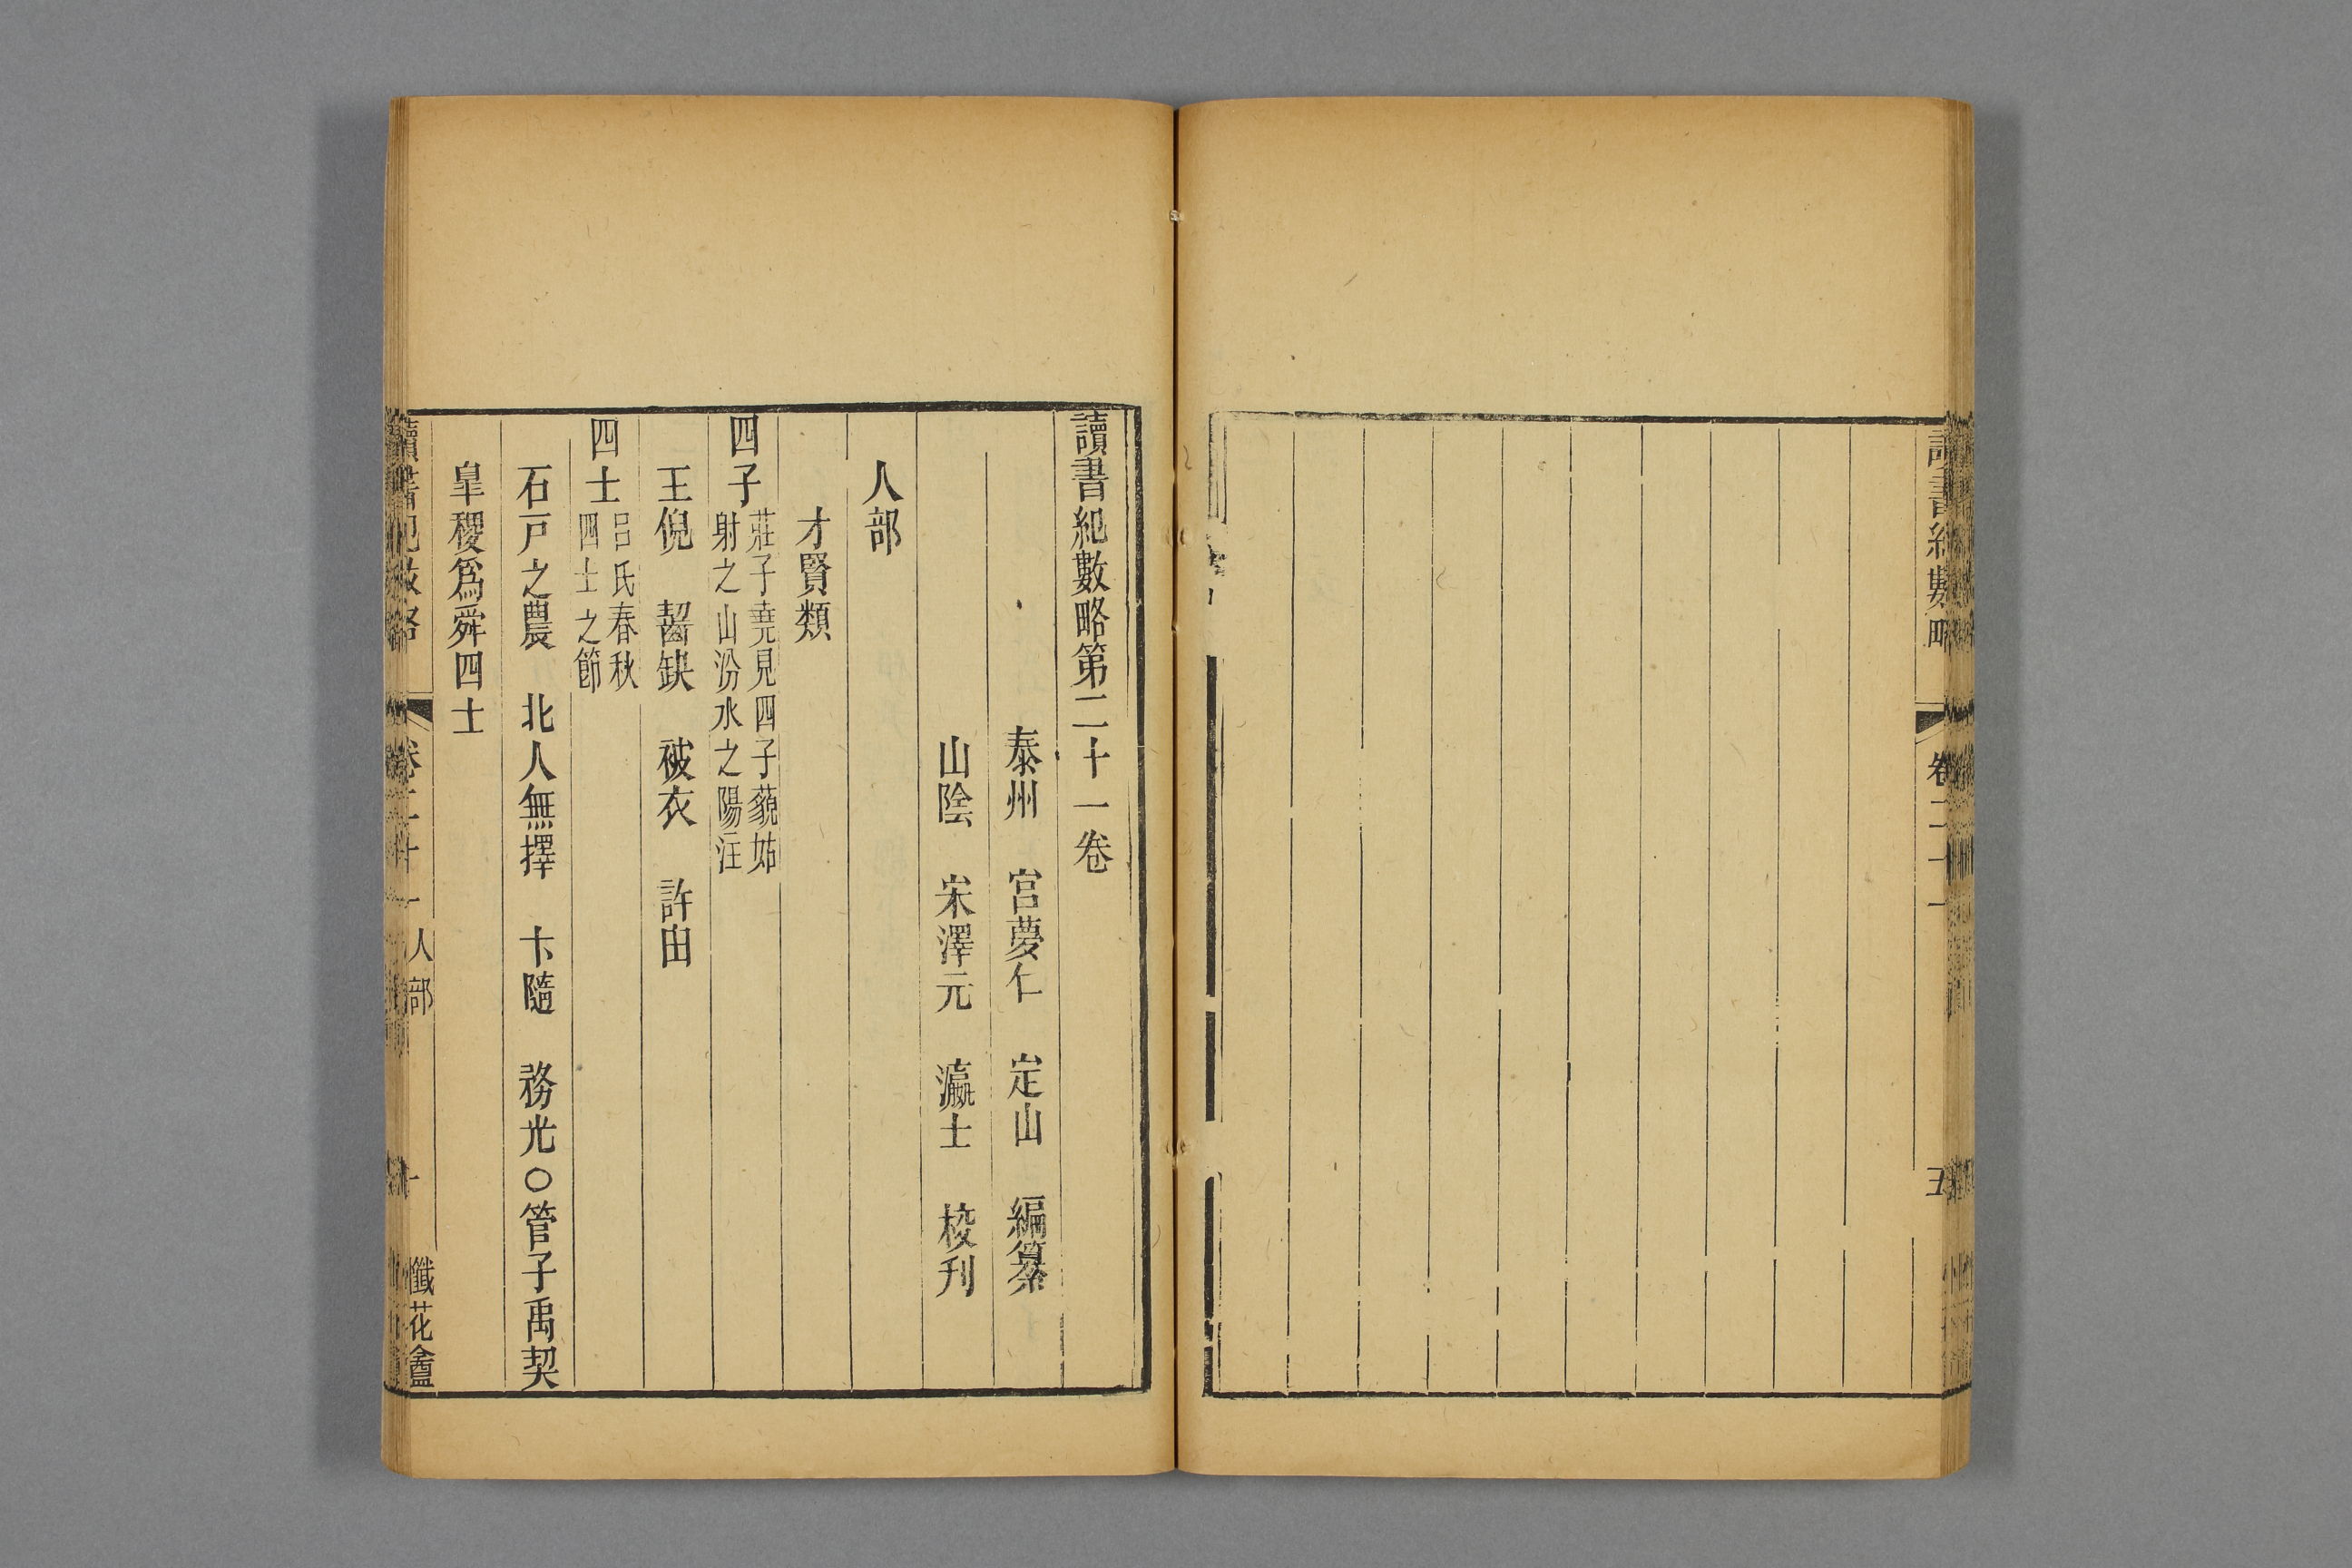 讀書紀數略
卷二十一
五
讀書紀數略第二十一卷
泰州 宮夢仁 定山 編纂
山陰 宋澤元 瀛士 校刋
人部
才賢類
四子 莊子堯見四子藐姑
射之山汾水之陽注
王倪 齧缺 被衣 許由
四士 呂氏春秋
四士之節
石戸之農 北人無擇 卞隨 務光○管子禹契
皐稷爲舜四士
讀書紀數略
卷二十一 人部
一
懺花盦